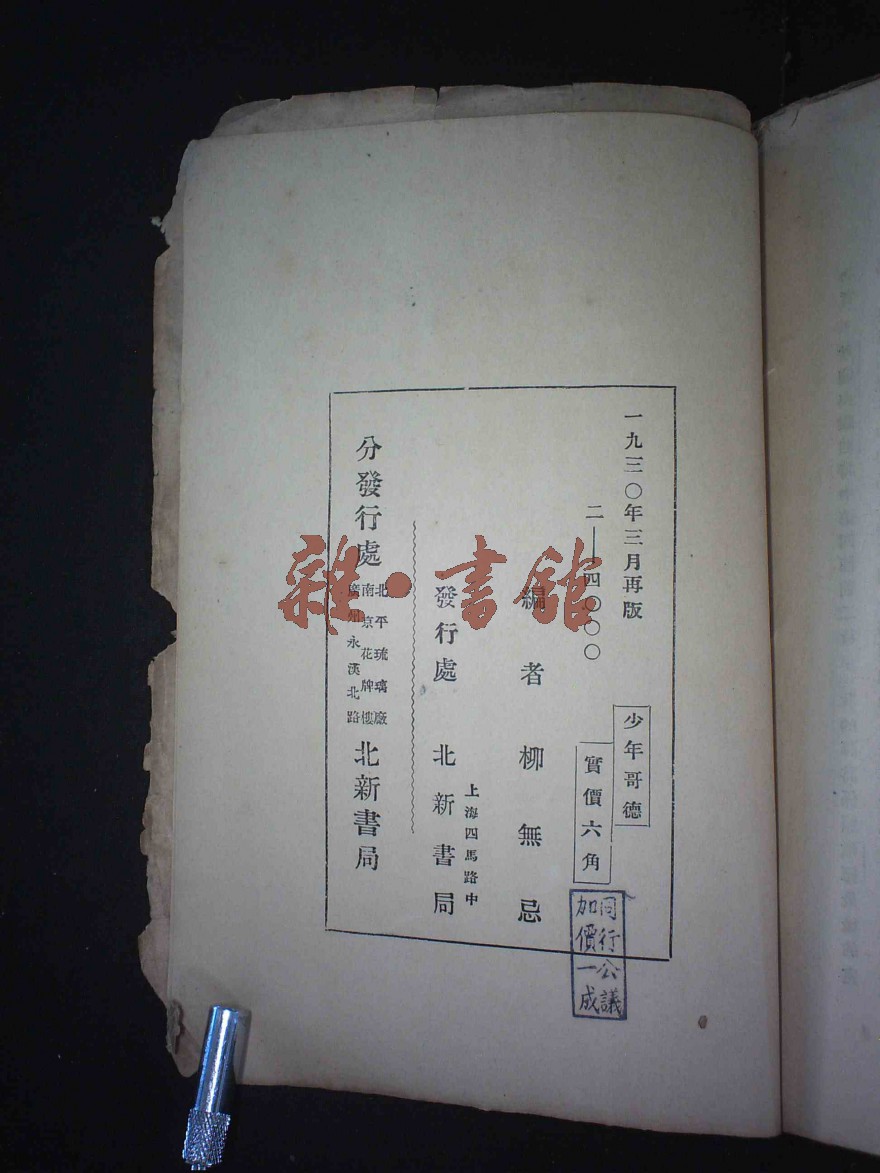 一九三〇年三月再版
二——四〇〇〇
少年哥德
實價六角
同行公議
加價一成
編者 柳無忌
上海四馬路中
發行處 北新書局
分發行處
北平琉璃廠
南京花牌樓
廣州永漢北路
北新書局
雜·書館